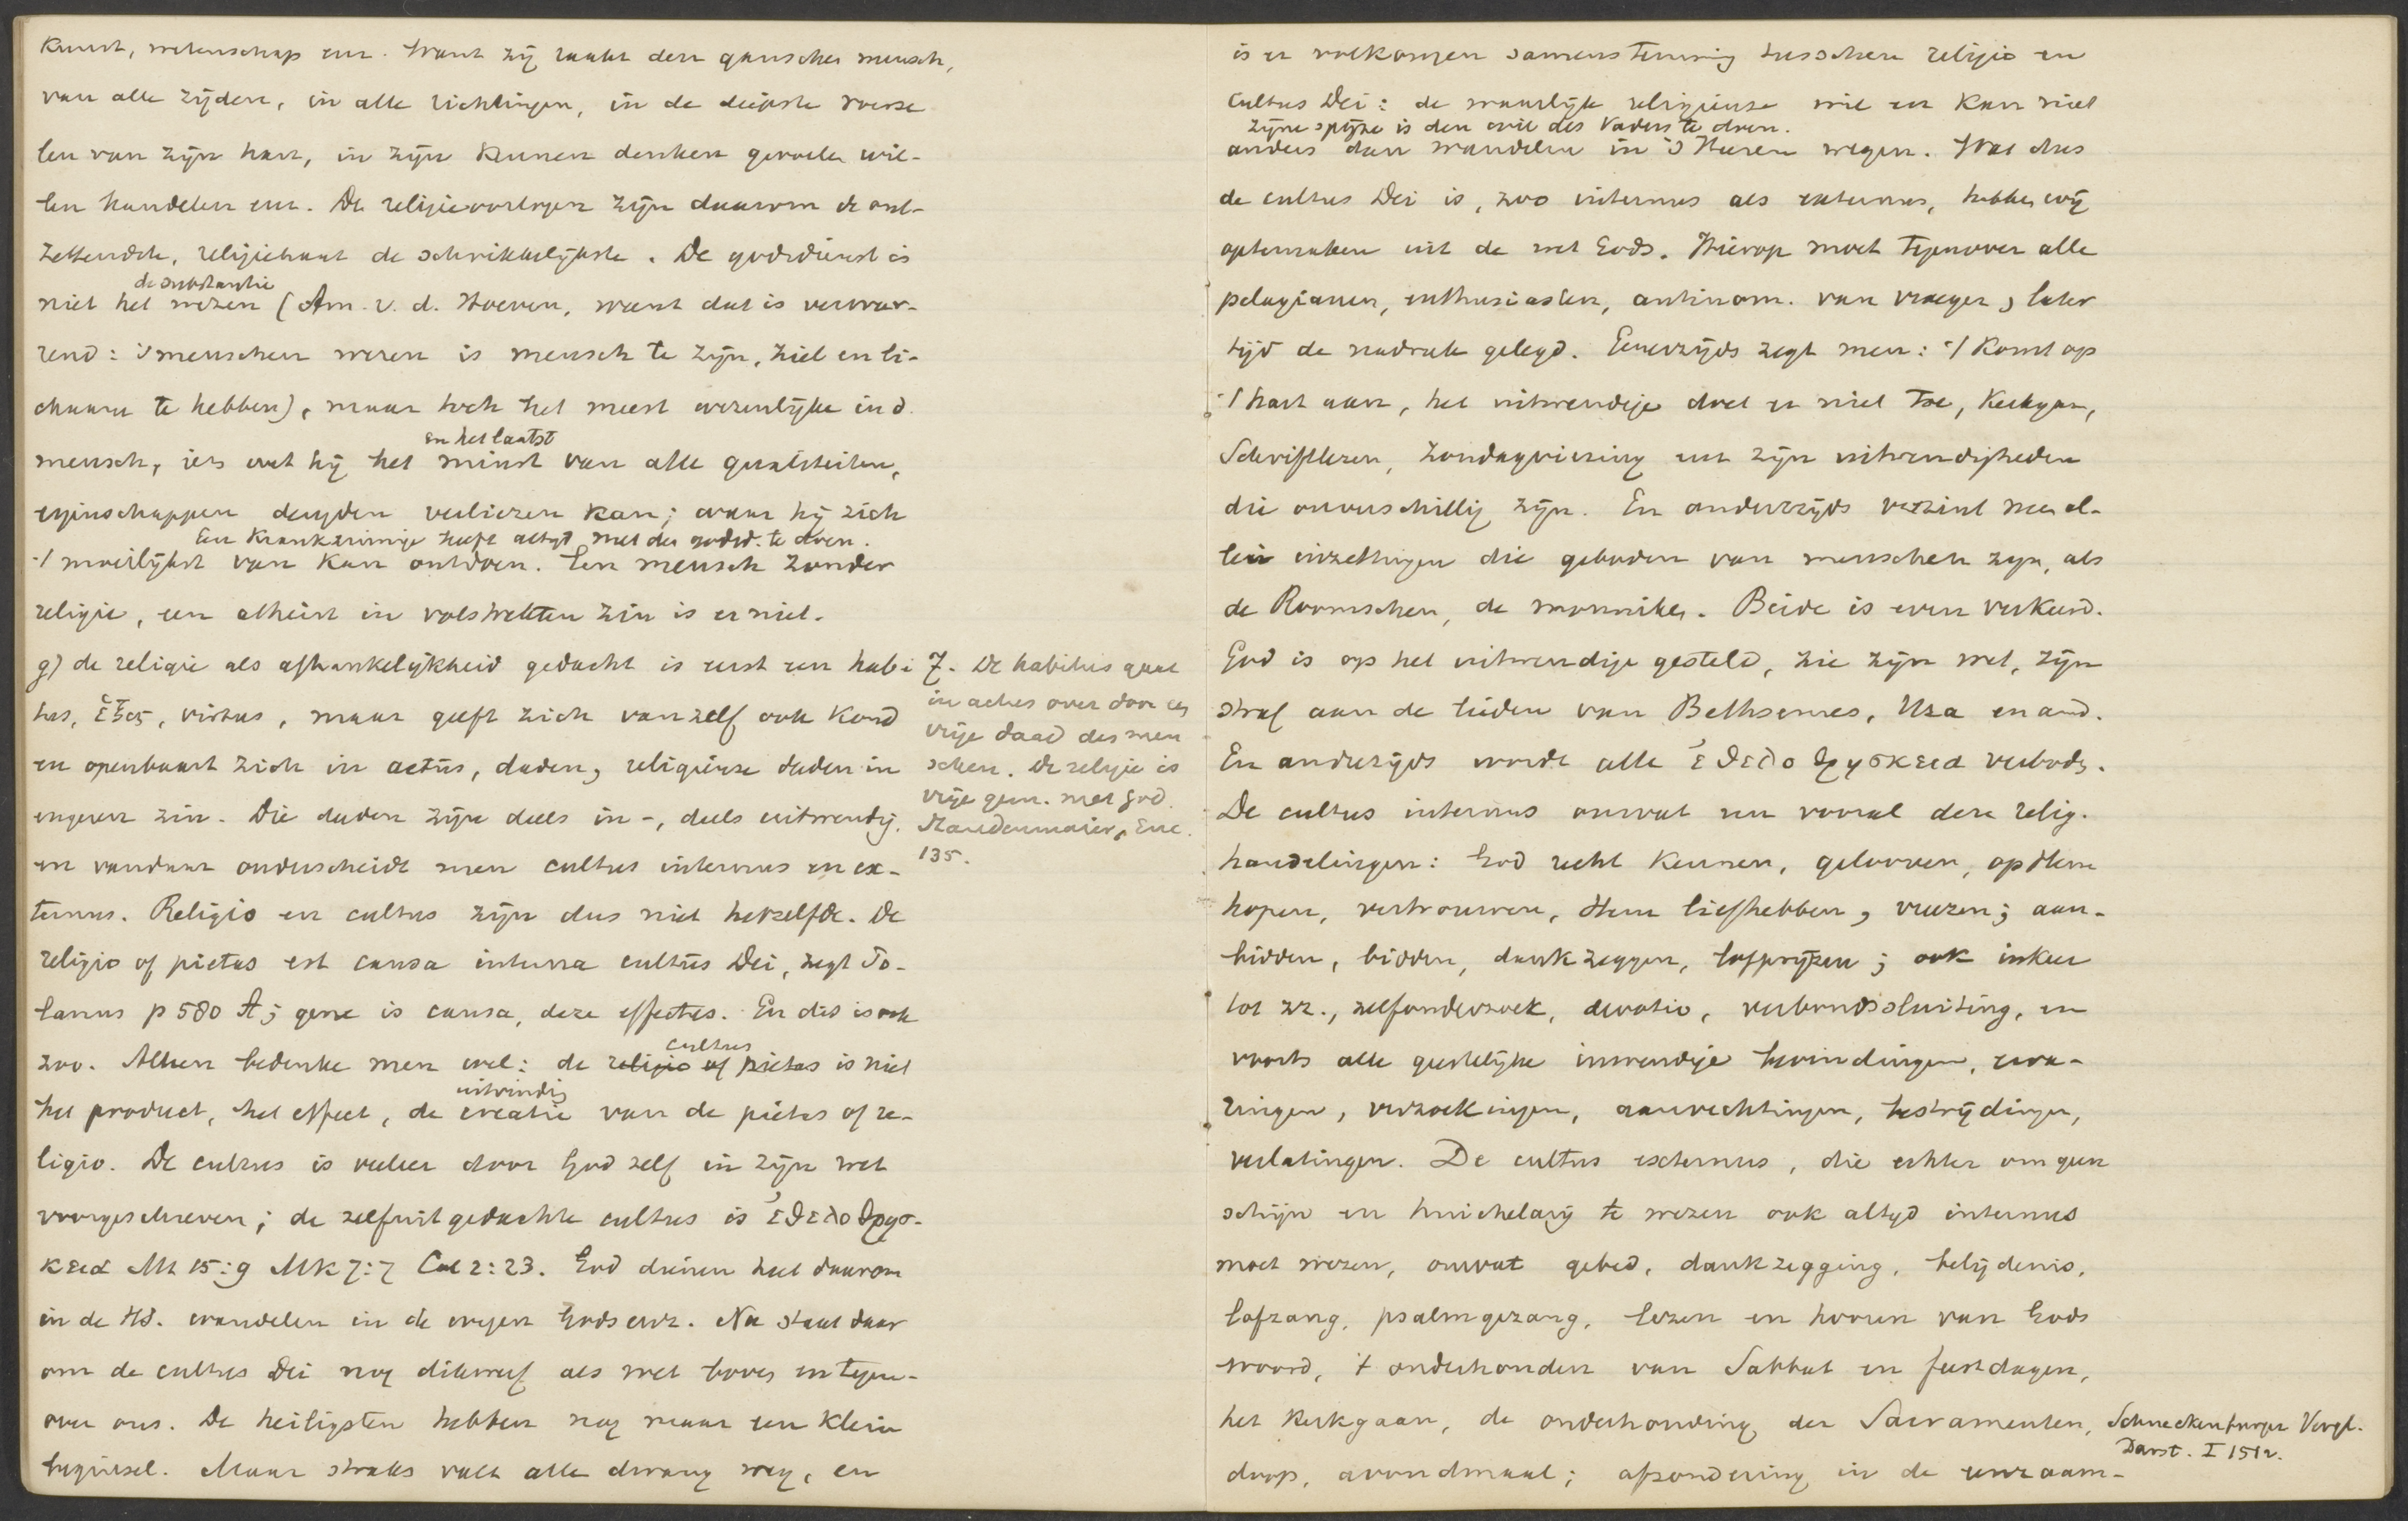 Kunst, wetenschap enz. Want zij raakt den ganschen mensch,
van alle zijden, in alle richtingen, in de diepste worse
len van zijn hart, in zijn kennen denken gevoelen wil-
len handelen enz. De religieoorlogen zijn daarom de ont-
zettendste, religiehaat de schrikkelijkste. De godsdienst is
de substantie
niet het wezen (Am. v. d. Hoeven, want dat is verwar-
rend: 's menschen wezen is mensch te zijn, ziel en li-
chaam te hebben), maar toch het meest wezenlijke in d.
en het laatst
mensch, iets wat hij het minst van alle qualiteiten,
eigenschappen deugden verliezen kan; waar hij zich
Een Krankzinnige heeft altijd met den godsd. te doen.
't moeilijkst van kan ontdoen. Een mensch zonder
religie, een atheist in volstrekten zin is er niet.
g) de religie als afhankelijkheid gedacht is eerst een habi
tus, ἕξις, virtus, maar geeft zich vanzelf ook kond
en openbaart zich in actus, daden, religieuze daden in
engeren zin. Die daden zijn deels in-, deels uitwendig.
en vandaar onderscheidt men cultus internus en ex-
ternus. Religio en cultus zijn dus niet hetzelfde. De
religio of pietas est causa interna cultus Dei, zegt Po-
lanus p 580 A; gene is causa, deze effectus. En dit is ook
zoo. Alleen bedenke men wel: de religio of pietas is niet
cultus
het product, het effect, de creatie van de pietas of re-
uitvinding
ligio. De cultus is veeleer door God zelf in zijn wet
voorgeschreven; de zelfuitgedachte cultus is ἐθελοθρησ-
κεια Mt 15:9 Mk 7:7 Col 2:23. God dienen heet daarom
in de H.S. wandelen in de wegen Gods enz. Nu staat daar
om de cultus Dei nog dikwerf als wet boven en tegen-
over ons. De heiligsten hebben nog maar een klein
beginsel. Maar straks valt alle dwang weg, en
7. De habitus gaat
in actus over door een
vrije daad des men
schen. De religie is
vrije gem. met God.
Staudenmaier, Enc.
135.
is er volkomen samenstemming tusschen religio en
cultus Dei: de waarlijk religieuse wil en kan niet
zijne spijze is den wil des Vaders te doen.
anders dan wandelen in 's Heeren wegen. Wat dus
de cultus Dei is, zoo internus als externus, hebben wij
optemaken uit de wet Gods. Hierop moet tegenover alle
pelagianen, enthusiasten, antinom. van vroeger, later
tijd de nadruk gelegd. Eenerzijds zegt men: 't komt op
't hart aan, het uitwendige doet er niet toe, Kerkgaan,
Schriftlezen, Zondagviering enz zijn uitwendigheden
die onverschillig zijn. En anderzijds verzint men al-
lerlei inzettingen die geboden van menschen zijn, als
de Roomschen, de monniken. Beide is even verkeerd.
God is op het uitwendige gesteld, zie zijn wet, zijn
straf aan de lieden van Bethsemes, Uza en and.
En anderzijds wordt alle ἐθελοθρησκεια verboden.
De cultus internus omvat nu vooral deze relig.
handelingen: God recht kennen, gelooven, op Hem
hopen, vertrouwen, Hem liefhebben, vreezen; aan-
bidden, bidden, dankzeggen, lofprijzen; ook inkeer
tot zz., zelfonderzoek, devotio, verbondssluiting, en
voorts alle geestelijke inwendige bevindingen, erva-
ringen, verzoekingen, aanvechtingen, bestrijdingen,
verlatingen. De cultus externus, die echter om geen
schijn en huichelarij te wezen ook altijd internus
moet wezen, omvat gebed, dankzegging, belijdenis,
lofzang, psalmgezang, lezen en hooren van Gods
woord, 't onderhouden van Sabbat en feestdagen,
het Kerkgaan, de onderhouding der Sacramenten,
doop, avondmaal; afzondering in de eenzaam-
Schneckenburger Vergl.
Darst. I 151v.